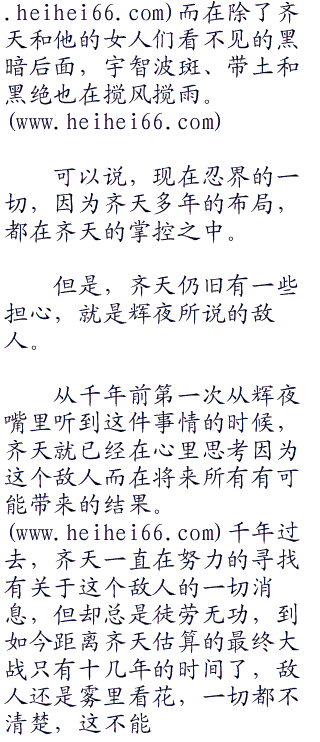 .heihei66.com)而在除了齐
天和他的女人们看不见的黑
暗后面，宇智波斑、带土和
黑绝也在搅风搅雨。
(www.heihei66.com)
可以说，现在忍界的一
切，因为齐天多年的布局，
都在齐天的掌控之中。
但是，齐天仍旧有一些
担心，就是辉夜所说的敌
人。
从千年前第一次从辉夜
嘴里听到这件事情的时候，
齐天就已经在心里思考因为
这个敌人而在将来所有有可
能带来的结果。
(www.heihei66.com)千年过
去，齐天一直在努力的寻找
有关于这个敌人的一切消
息，但却总是徒劳无功，到
如今距离齐天估算的最终大
战只有十几年的时间了，敌
人还是雾里看花，一切都不
清楚，这不能